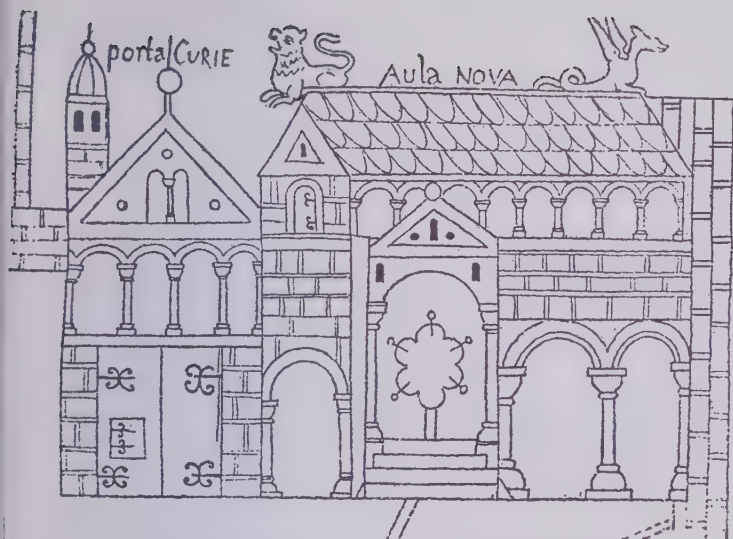 portal CURIE
Aula NOVA